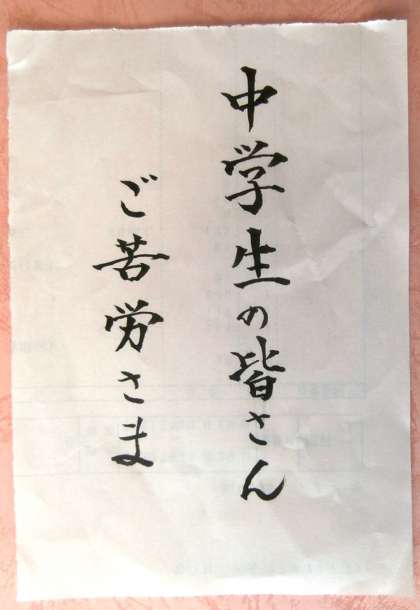 中学生の皆さん
ご苦労さま